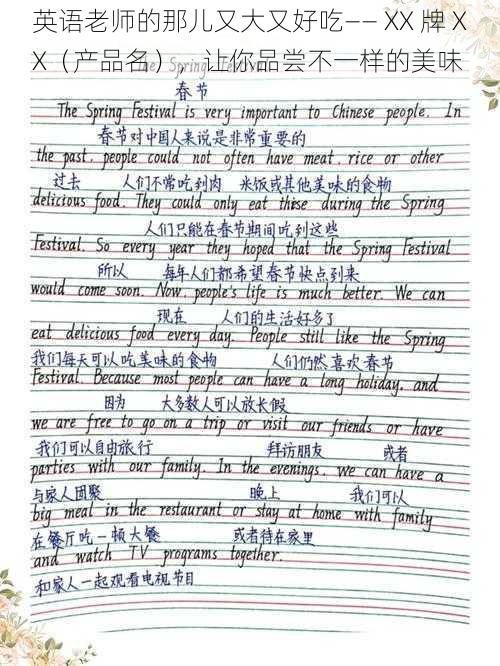 英语老师的那儿又大又好吃—— XX 牌 X
X（产品名），让你品尝不一样的美味
The Spring Festival
春节
The Spring Festival is very important to Chinese people. In
春节对中国人来说是非常重要的
the past, people could not often have meat, rice or other
过去 人们不常吃到肉 米饭或其他美味的食物
delicious food. They could only eat these during the Spring
人们只能在春节期间吃到这些
Festival. So every year they hoped that the Spring Festival
所以 每年人们都希望春节快点到来
would come soon. Now, people's life is much better. We can
现在 人们的生活好多了
eat delicious food every day. People still like the Spring
我们每天可以吃美味的食物 人们仍然喜欢春节
Festival. Because most people can have a long holiday, and
因为 大多数人可以放长假
we are free to go on a trip or visit our friends or have
我们可以自由旅行 拜访朋友 或者
parties with our family. In the evenings, we can have a
与家人团聚 晚上 我们可以
big meal in the restaurant or stay at home with family
在餐厅吃一顿大餐 或者待在家里
and watch TV programs together.
和家人一起观看电视节目